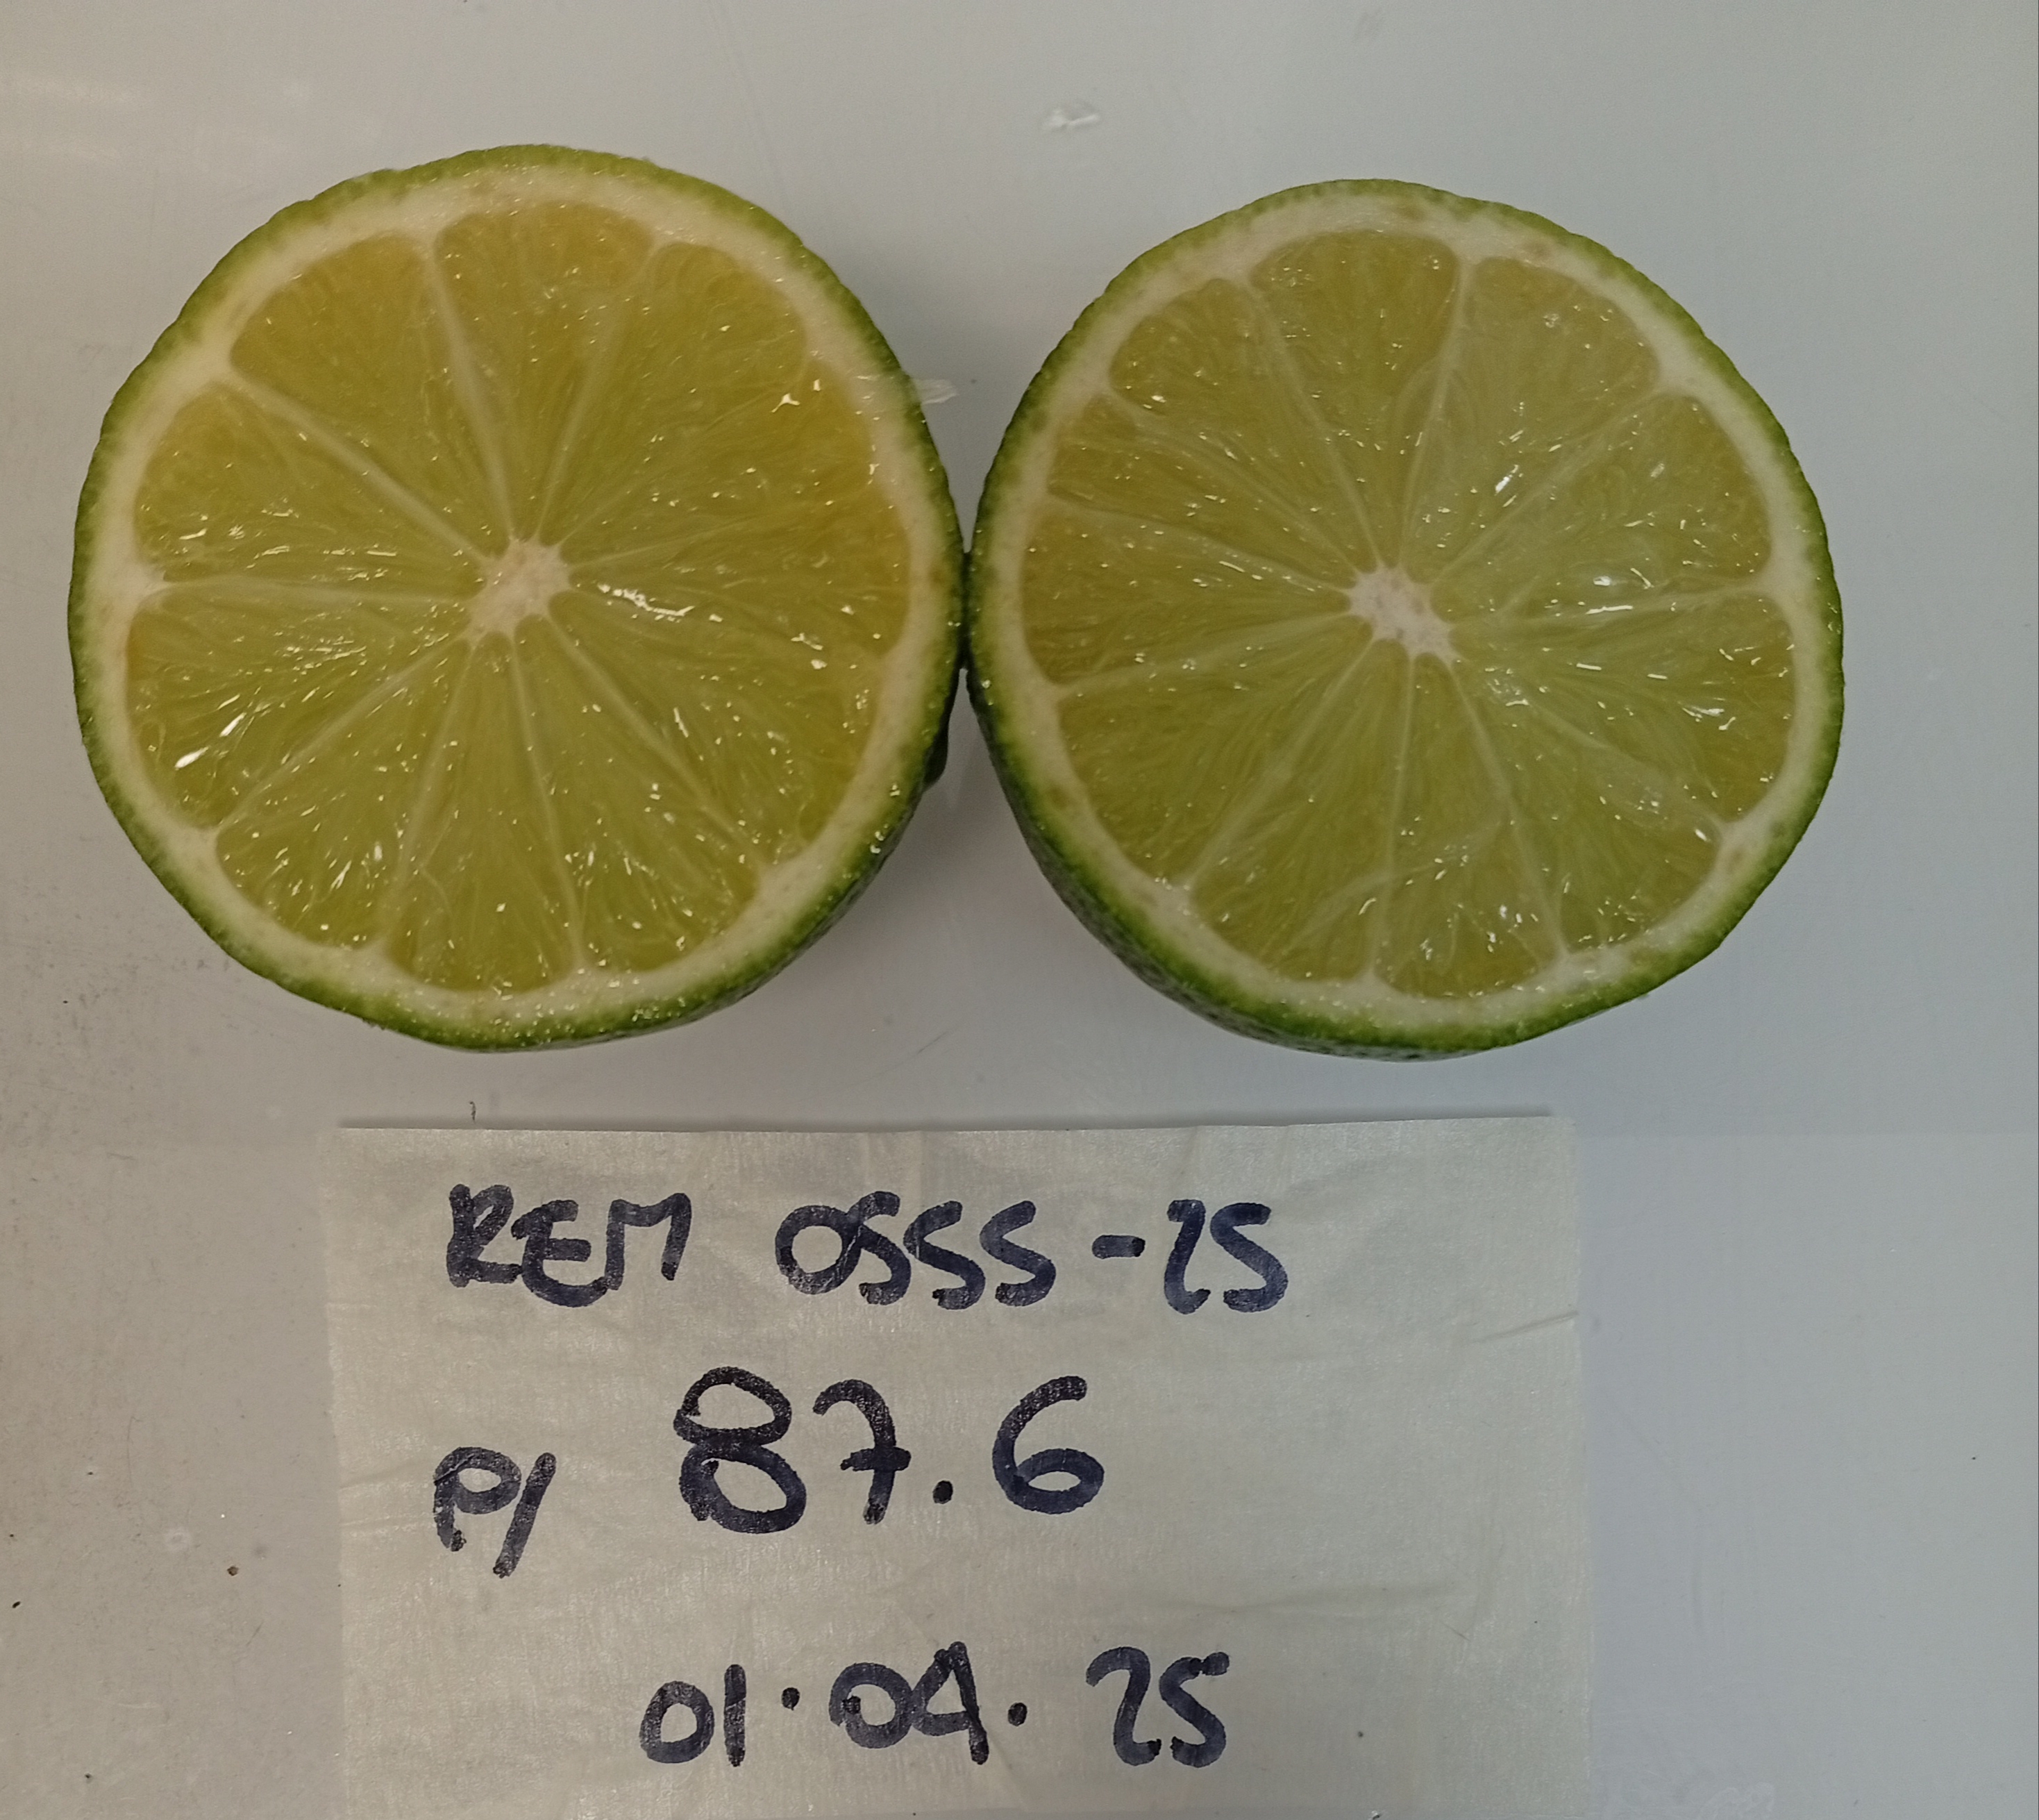 REM 0555-25
P/ 87.6
01.04.25